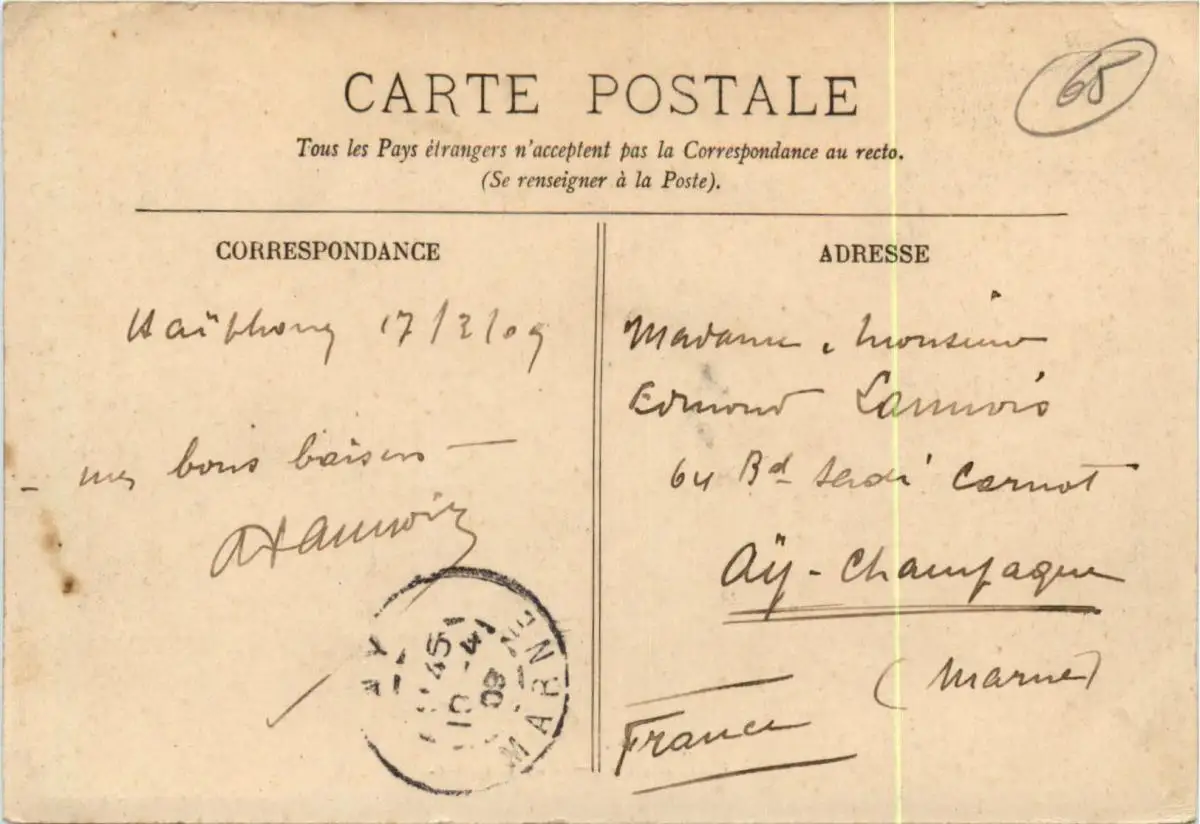 65
CARTE POSTALE
Tous les Pays étrangers n'acceptent pas la Correspondance au recto.
(Se renseigner à la Poste).
CORRESPONDANCE
Haïphong 17/3/09
- mes bons baisers —
ADRESSE
Madame, Monsieur
Edmond Lannois
64 Bd Sadi Carnot
Aÿ-Champagne
(Marne)
France
AY
45
10-4
09
MARNE